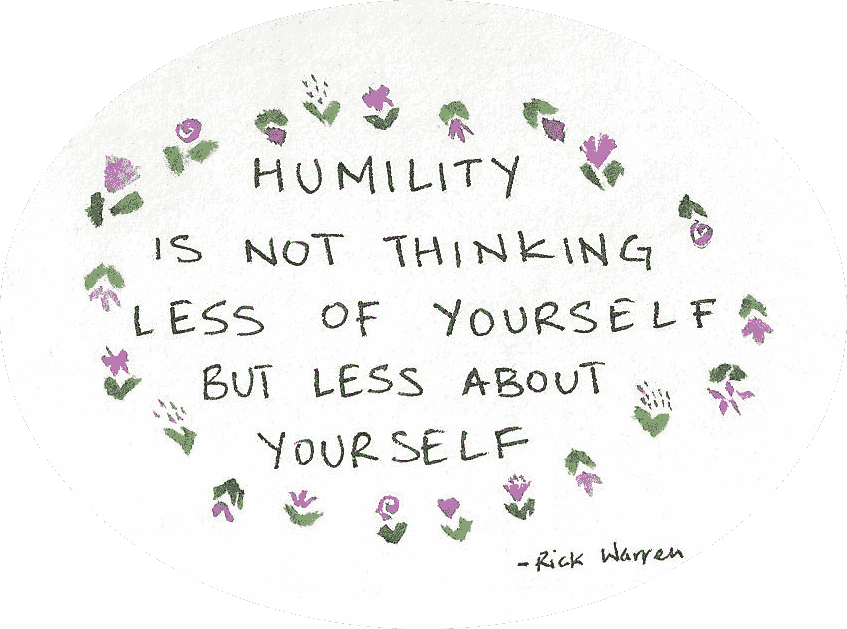 HUMILITY
IS NOT THINKING
LESS OF YOURSELF
BUT LESS ABOUT
YOURSELF
-Rick Warren